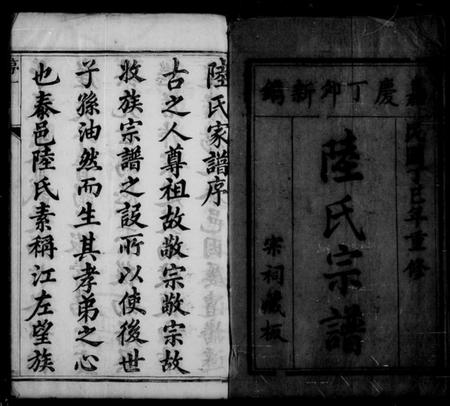 慶丁卯新編
民國丁巳年重修
陸氏宗譜
宗祠藏板
陸氏家譜序
古之人尊祖故敬宗敬宗故
收族宗譜之設所以使後世
子孫油然而生其孝弟之心
也泰邑陸氏素稱江左望族
序